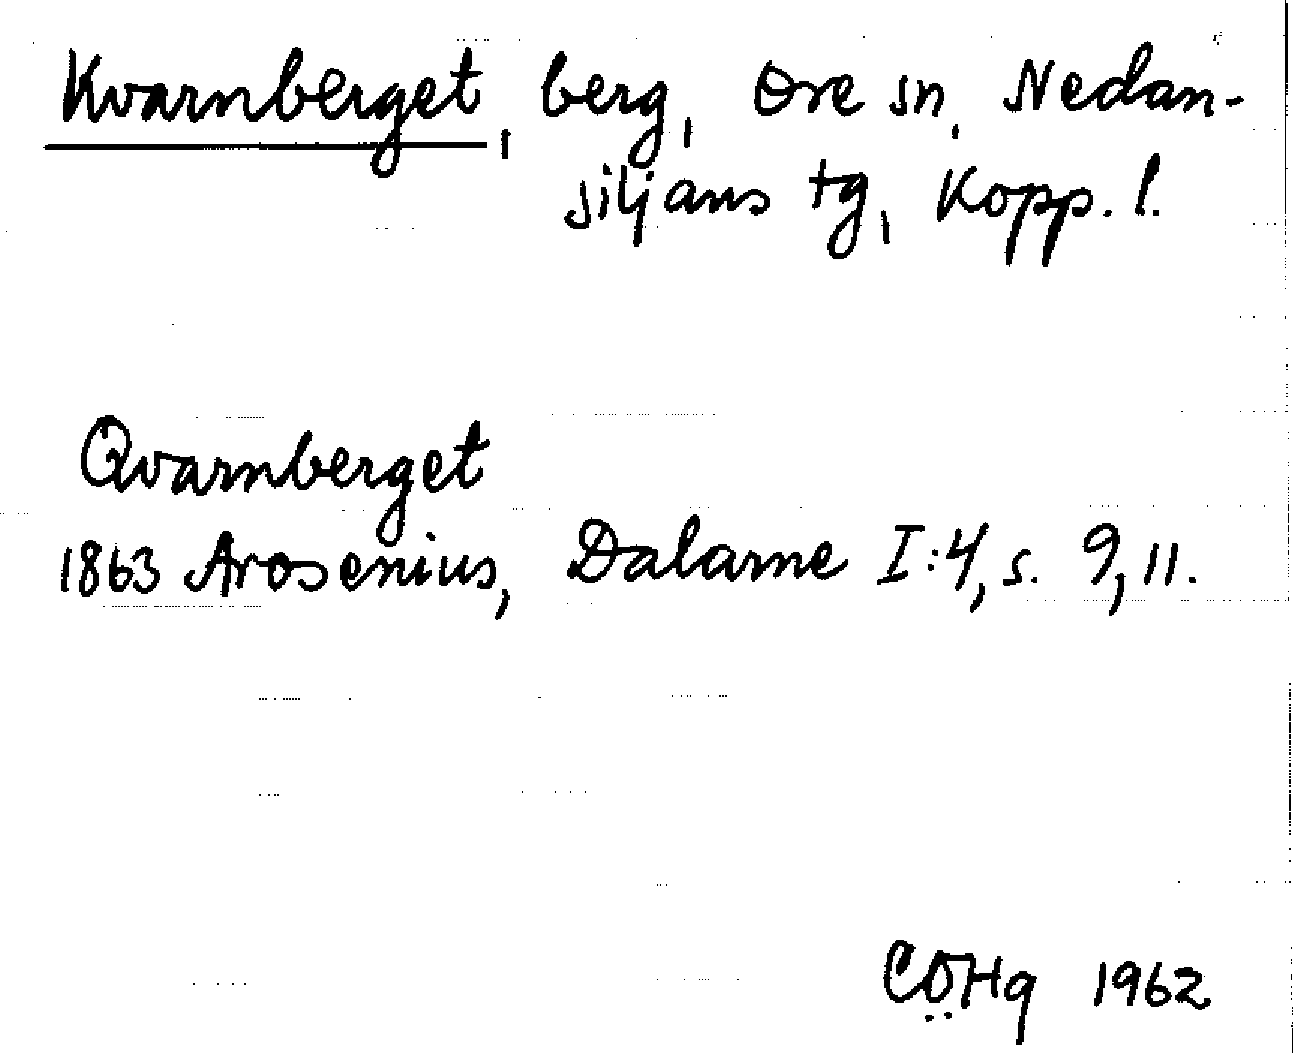 Kvarnberget, berg, Ore sn, Nedan-
siljans tg, Kopp. l.
Qvarnberget
1863 Arosenius, Dalarne I:4, s. 9, 11.
CÖHg 1962